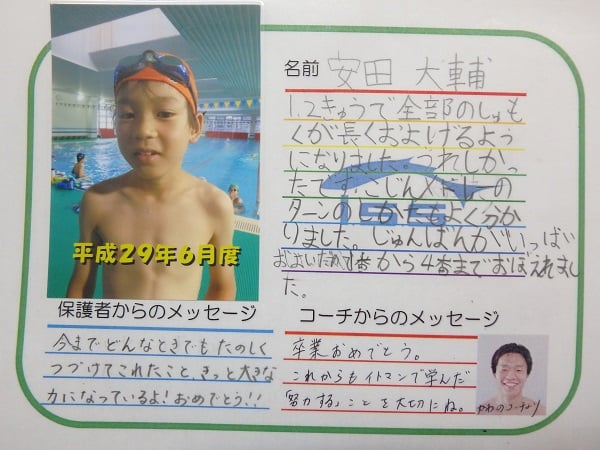 名前 安田 大輔
1.2きゅうで全部のしゅも
くが長くおよげるよう
になりました。うれしかっ
たです。こじんメドレーの
ターンのしかたもよく分か
りました。じゅんばんがいっぱい
およいだが1番から4番までおぼえれまし
た。
平成29年6月度
保護者からのメッセージ
今までどんなときでもたのしく
つづけてこれたこと、きっと大きな
力になっているよ!おめでとう!!
コーチからのメッセージ
卒業おめでとう。
これからもイトマンで学んだ
「努力する」ことを大切にね。
かわのコーチより